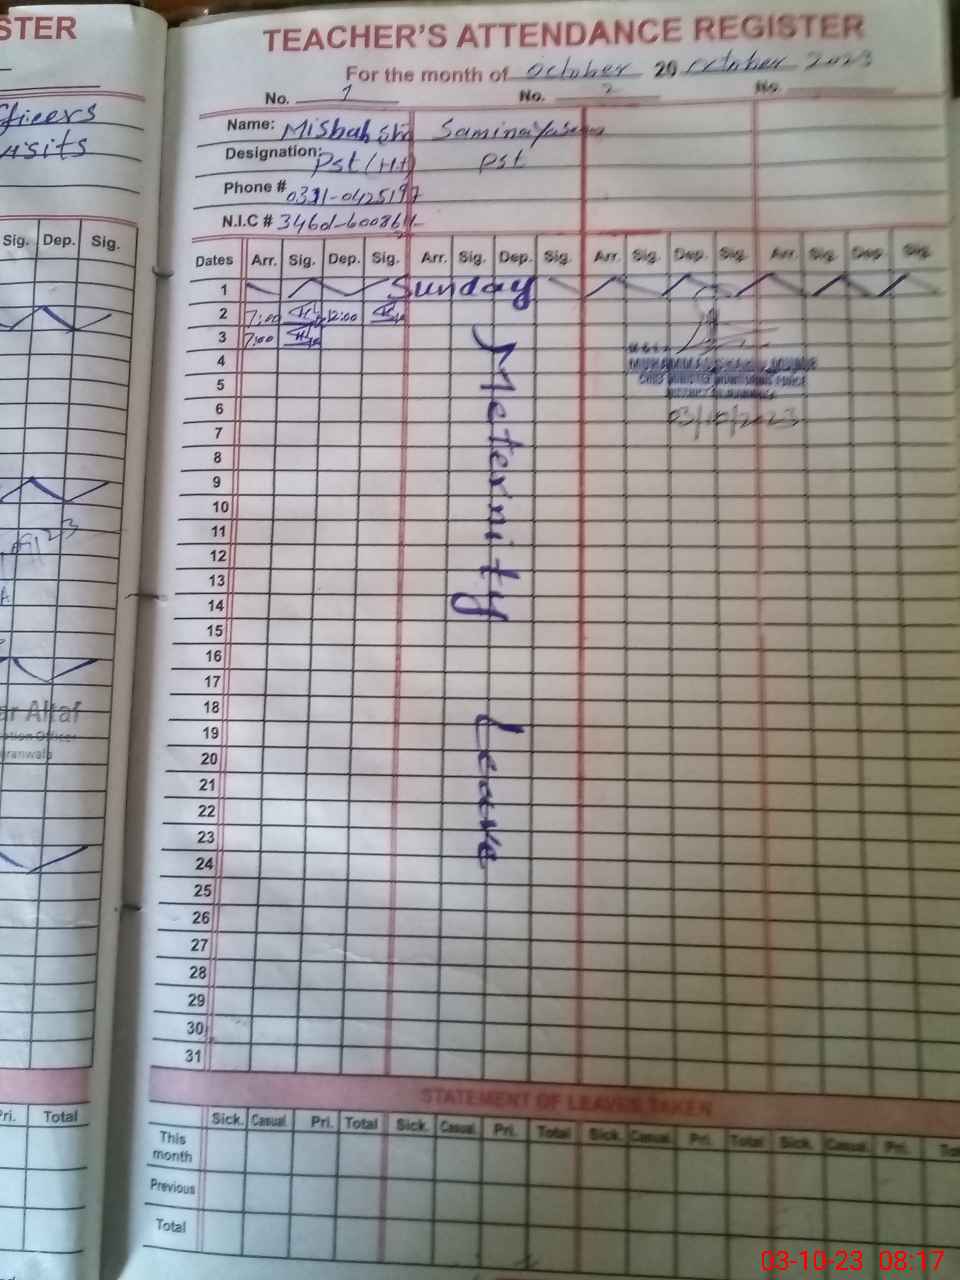 STER
fficers
visits
Sig. Dep. Sig.
Pri. Total
TEACHER'S ATTENDANCE REGISTER
For the month of October 20 October 2023
No. 1 No. 2 No.
Name: Misbah Samina
Designation: Pst (Ht) Pst
Phone #
N.I.C #
Dates Arr. Sig. Dep. Sig. Arr. Sig. Dep. Sig. Arr. Sig. Dep. Sig. Arr. Sig. Dep. Sig.
1 Sunday
2 7:00 12:00
3 7:00
Meternity Leave
4
5
03/10/2023
6
7
8
9
10
11
12
13
14
15
16
17
18
19
20
21
22
23
24
25
26
27
28
29
30
31
STATEMENT OF LEAVES TAKEN
Sick. Casual. Pri. Total Sick. Casual. Pri. Total Sick. Casual. Pri. Total Sick. Casual. Pri.
This month
Previous
Total
03-10-23 08:17